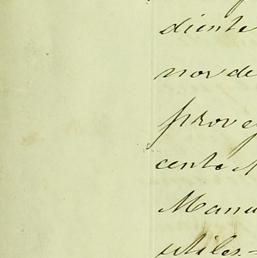 diente
nor de
prove
cente
Manu
utiles